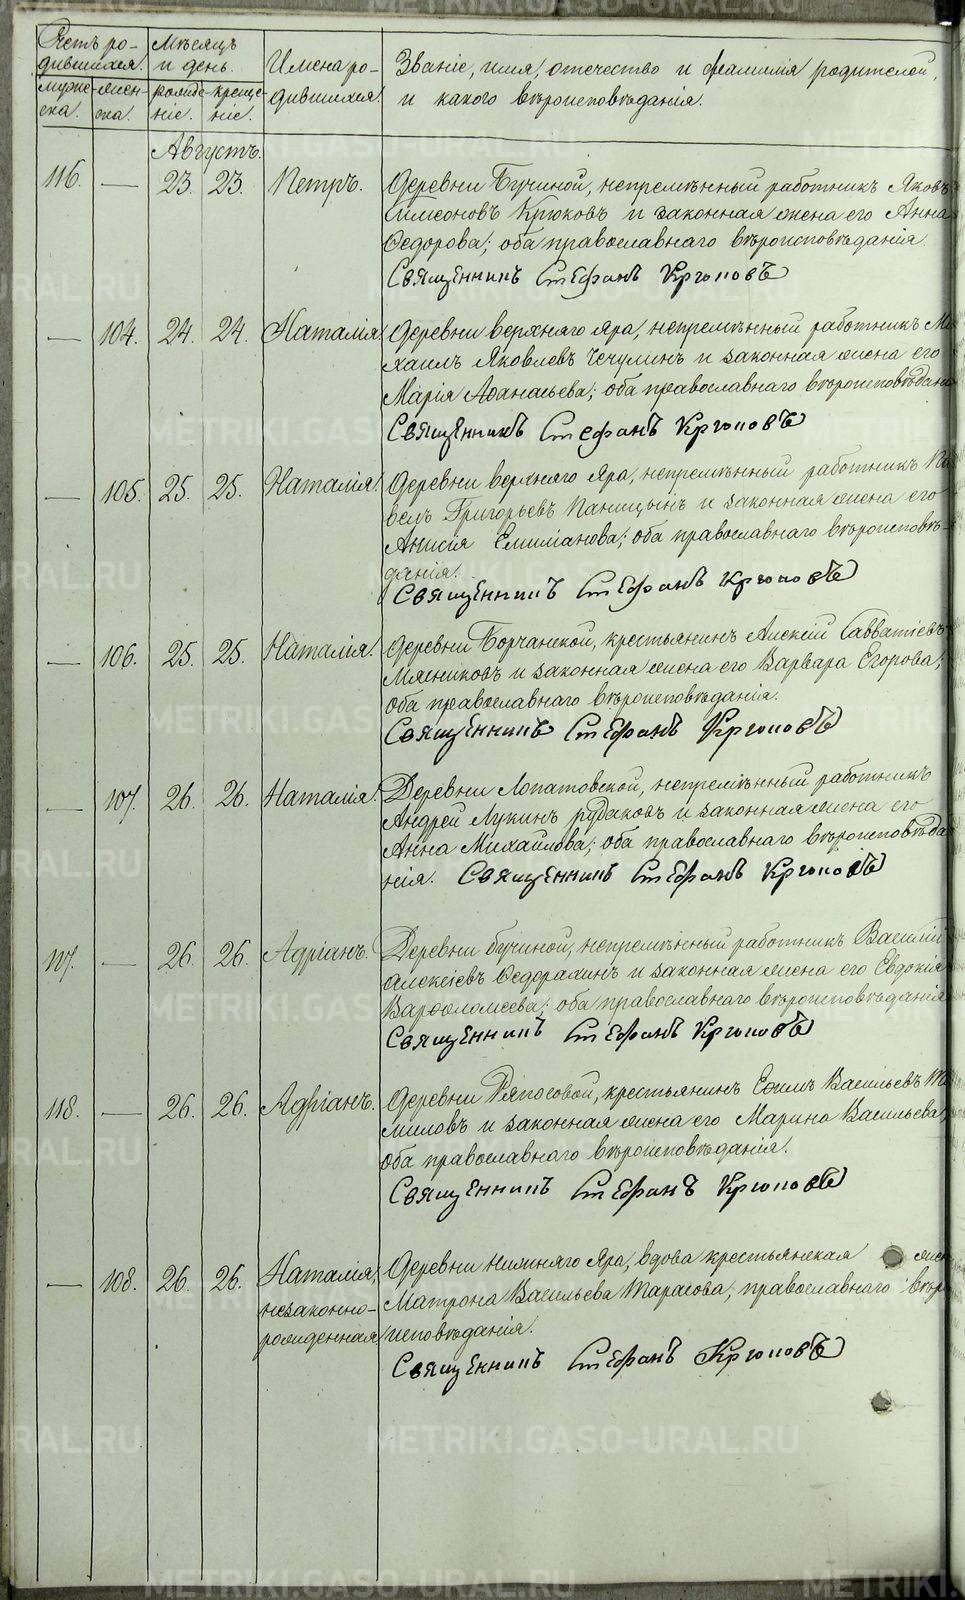 Счетъ ро-
дившихся.
Мѣсяцъ
и день.
Имена ро-
дившихся.
Званіе, имя, отечество и фамилія родителей,
и какого вѣроисповѣданія.
муже-
ска.
жен-
ска.
рожде-
ніе.
креще-
ніе.
Августъ.
116. — 23. 23. Петръ. Деревни Бучиной, непремѣнный работникъ Яковъ
Симеоновъ Крюковъ и законная жена его Анна
Ѳедорова; оба православнаго вѣроисповѣданія.
Священникъ Стефанъ Крюковъ
— 104. 24. 24. Наталія. Деревни верхняго Яра, непремѣнный работникъ Ми
хаилъ Яковлевъ Чечулинъ и законная жена его
Марія Аѳанасьева; оба православнаго вѣроисповѣдані
Священникъ Стефанъ Крюковъ
— 105. 25. 25. Наталія. Деревни верхняго Яра, непремѣнный работникъ Па
велъ Григорьевъ Паницынъ и законная жена его
Анисія Емиліанова; оба православнаго вѣроисповѣ-
данія.
Священникъ Стефанъ Крюковъ
— 106. 25. 25. Наталія. Деревни Борчанской, крестьянинъ Алексій Савватіевъ
Мясниковъ и законная жена его Варвара Егорова;
оба православнаго вѣроисповѣданія.
Священникъ Стефанъ Крюковъ
— 107. 26. 26. Наталія. Деревни Лопатовской, непремѣнный работникъ
Андрей Лукинъ Рудаковъ и законная жена его
Анна Михайлова; оба православнаго вѣроисповѣда
нія. Священникъ Стефанъ Крюковъ
117. — 26. 26. Адріанъ. Деревни Бучиной, непремѣнный работникъ Василій
Алексіевъ Ѳедорахинъ и законная жена его Евдокія
Варѳоломеева; оба православнаго вѣроисповѣданія
Священникъ Стефанъ Крюковъ
118. — 26. 26. Адріанъ. Деревни Ряпосовой, крестьянинъ Еѳимъ Васильевъ
миловъ и законная жена его Марина Васильева;
оба православнаго вѣроисповѣданія.
Священникъ Стефанъ Крюковъ
— 108. 26. 26. Наталія, Деревни нижняго Яра, вдова крестьянская жен
незаконно- Матрона Васильева Тарасова, православнаго вѣро
рожденная. исповѣданія.
Священникъ Стефанъ Крюковъ
METRIKI.GASO-URAL.RU